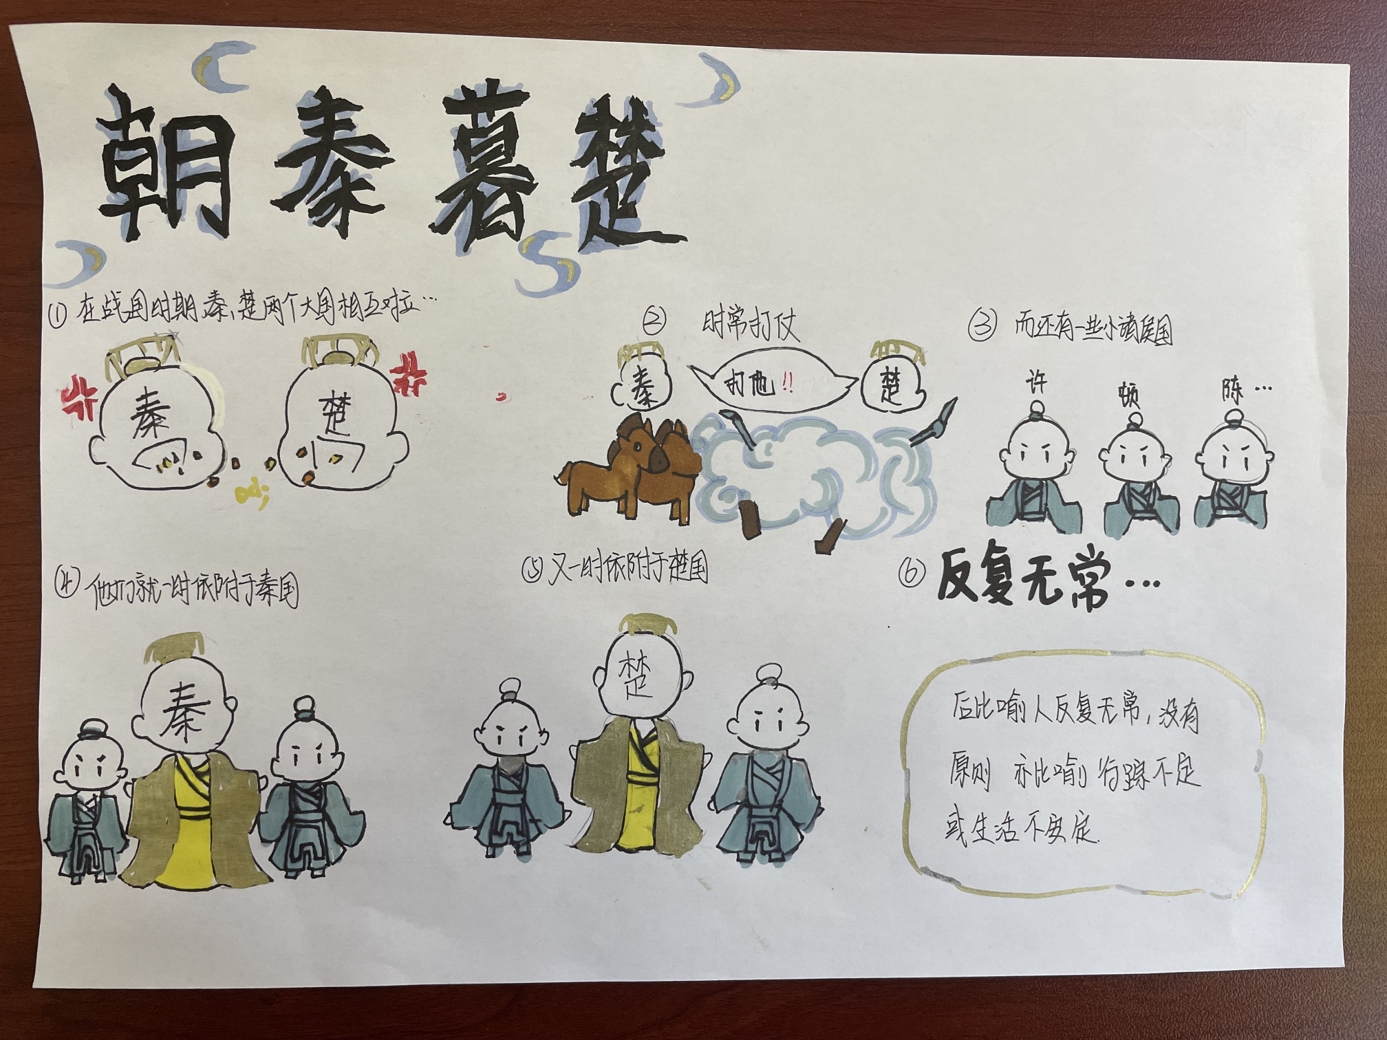 朝秦暮楚
①在战国时期,秦、楚两个大国相互对立…
秦
楚
②时常打仗
秦
打他!!
楚
③而还有一些小诸侯国
许
顿
陈…
④他们就一时依附于秦国
秦
⑤又一时依附于楚国
楚
⑥反复无常…
后比喻人反复无常,没有
原则 亦比喻行踪不定
或生活不安定